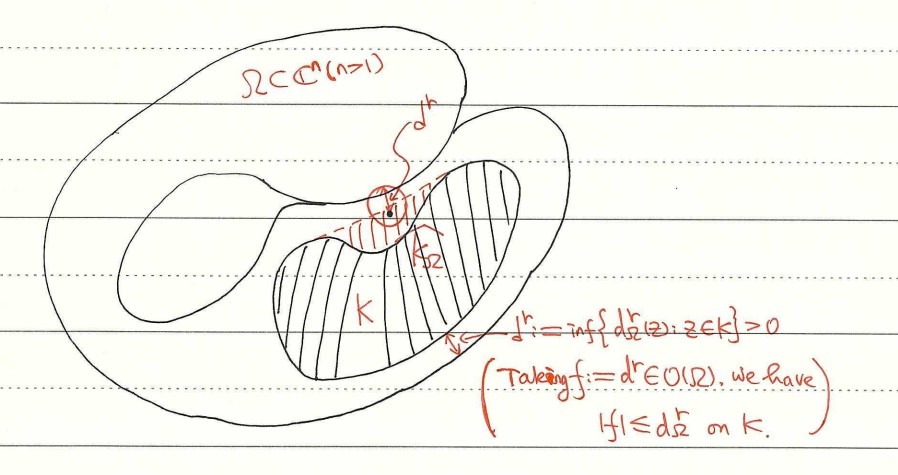 Ω⊂ℂⁿ(n>1)
dʳ
K̂_Ω
K
dʳ:=inf{dʳ_Ω(z): z∈K}>0
(Taking f:=dʳ∈O(Ω), we have
|f|≤dʳ_Ω on K.)